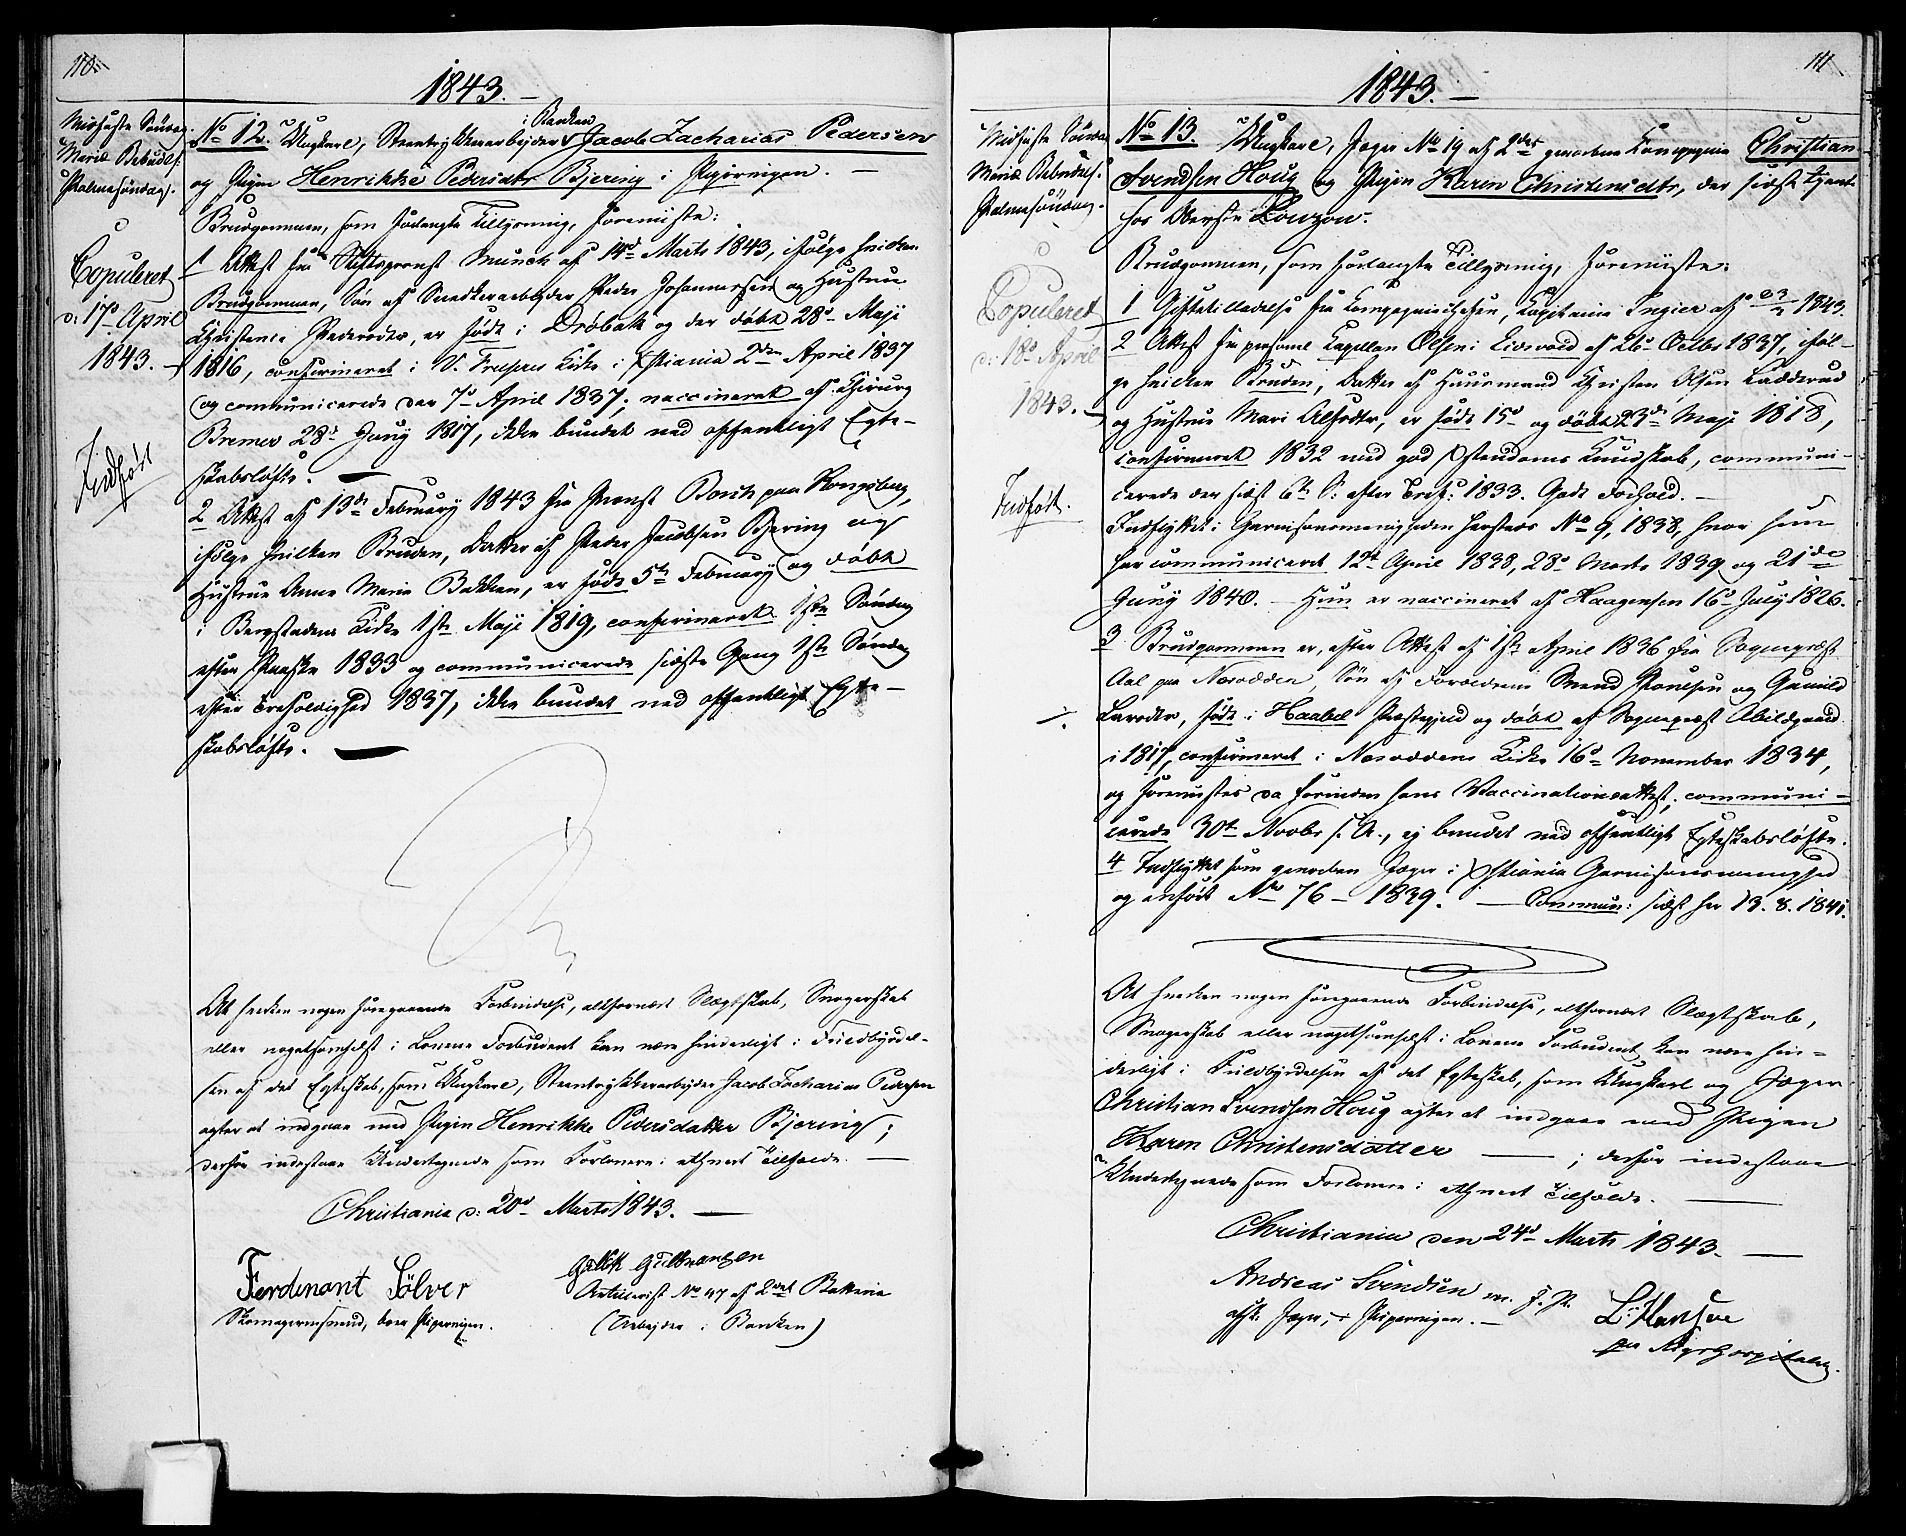 110.
1843.
Midfaste Söndag.
Mariæ Bebudels:
Palmesöndag.
Copuleret
d: 17d April
1843.
Indført
i Banken
No 12. Ungkarl, Steentrykkerarbejder Jacob Zacharias Pedersen
og Pigen Henrikke Pedersdtr Bjering i Pipervigen.
Brudgommen, som forlangte Tillysning, foreviste:
1 Attest fra Stiftsprovst Munch af 14d Marts 1843, ifølge hvilken
Brudgommen, Søn af Snedkerarbejder Peder Johannessen og Hustrue
Christence Pedersdtr, er født i Drøbak og der døbt 28d Maji
1816, confirmeret i V. Frelsers Kirke i Xstiania 2den April 1837
og communicerede der 7d April 1837, vaccineret af Chirurg
Bremer 28d Juny 1817, ikke bundet ved offentligt Egte-
skabsløfte.
2 Attest af 13de February 1843 fra Provst Borch paa Kongsberg,
ifølge hvilken Bruden, Datter af Peder Jacobsen Bjering og
Hustrue Anne Marie Bakken, er født 5te February og døbt
i Bergstadens Kirke 1ste Maji 1819, confirmeret 1ste Søndag
efter Paaske 1833 og communicerede sidste Gang 1ste Søndag
efter Trefoldighed 1837, ikke bundet ved offentligt Egte-
skabsløfte.
At hverken nogen foregaaende Forbindelse, altfornært Slægtskab, Svogerskab
eller nogetsomhelst i Lovene Forbudent kan være hinderligt i Fuldbyrdel-
sen af det Egteskab, som Ungkarl, Steentrykkerarbejder Jacob Zacharias Pedersen
agter at indgaae med Pigen Henrikke Pedersdatter Bjering;
derfor indestaae Undertegnede som Forlovere i ethvert Tilfælde.
Christiania d: 20d Marts 1843.
Ferdinant Sölver
Skomagersvend, boer Pipervigen.
Gulbrandsen
Artillerist No 47 af 2det Batterie
(Arbejder i Banken)
111
1843.
Midfaste Söndag
Mariæ Bebudels:
Palmesöndag.
Copuleret
d: 18d April
1843.
Indført.
No 13. Ungkarl, Jæger No 19 af 2det gevorbne Kompagnie Christian
Svendsen Houg og Pigen Karen Christensdtr, der sidst tjente
hos Oberste Louzow.
Brudgommen, som forlangte Tillysning, foreviste:
1 Giftetilladelse fra Kompagniechefen, Kapitaine Ingier af 23/2 1843.
2 Attest fra personel Kapellan Olsen i Eidsvold af 26d Octbr 1837, iføl-
ge hvilken Bruden, Datter af Huusmand Christen Olsen Ladderud
og Hustrue Mari Olsdtr, er født 15d og døbt 23de Maji 1818,
confirmeret 1832 med god Xstendoms Kundskab, communi-
cerede der sidst 6te S: efter Tref: 1833. Godt Forhold.
Indflyttet i Garnisonsmenigheden hersteds No 9, 1838, hvor hun
har communiceret 12te April 1838, 28d Marts 1839 og 21de
Juny 1840. Hun er vaccineret af Haagensen 16d July 1826.
3 Brudgommen er, efter Attest af 1ste April 1836 fra Sognepræst
Aal paa Nesodden, Søn af Forældrene Svend Poulsen og Gunild
Larsdtr, født i Haabøl Præstegjeld og døbt af Sognepræst Abildgaard
i 1817, confirmeret i Nesoddens Kirke 16d November 1834,
og forevistes da forinden hans Vaccinationsattest, communi-
cerede 30te Novbr s. A., ej bundet ved offentligt Egteskabsløfte.
4 Indflyttet som gevorben Jæger i Xstiania Garnisonsmenighed
og anført No 76 - 1839. Commun: sidst her 13. 8. 1841.
At hverken nogen foregaaende Forbindelse, altfornært Slægtskab,
Svogerskab eller nogetsomhelst i Lovene Forbudent kan være hin-
derligt i Fuldbyrdelsen af det Egteskab, som Ungkarl og Jæger
Christian Svendsen Houg agter at indgaae med Pigen
Karen Christensdatter ; derfor indestaae
Undertegnede som Forlovere i ethvert Tilfælde.
Christiania den 24d Marts 1843.
Andreas Svendsen m. f. P.
afsk. Jæger, i Pipervigen.
L: Hansen
paa Rigshospitalet.